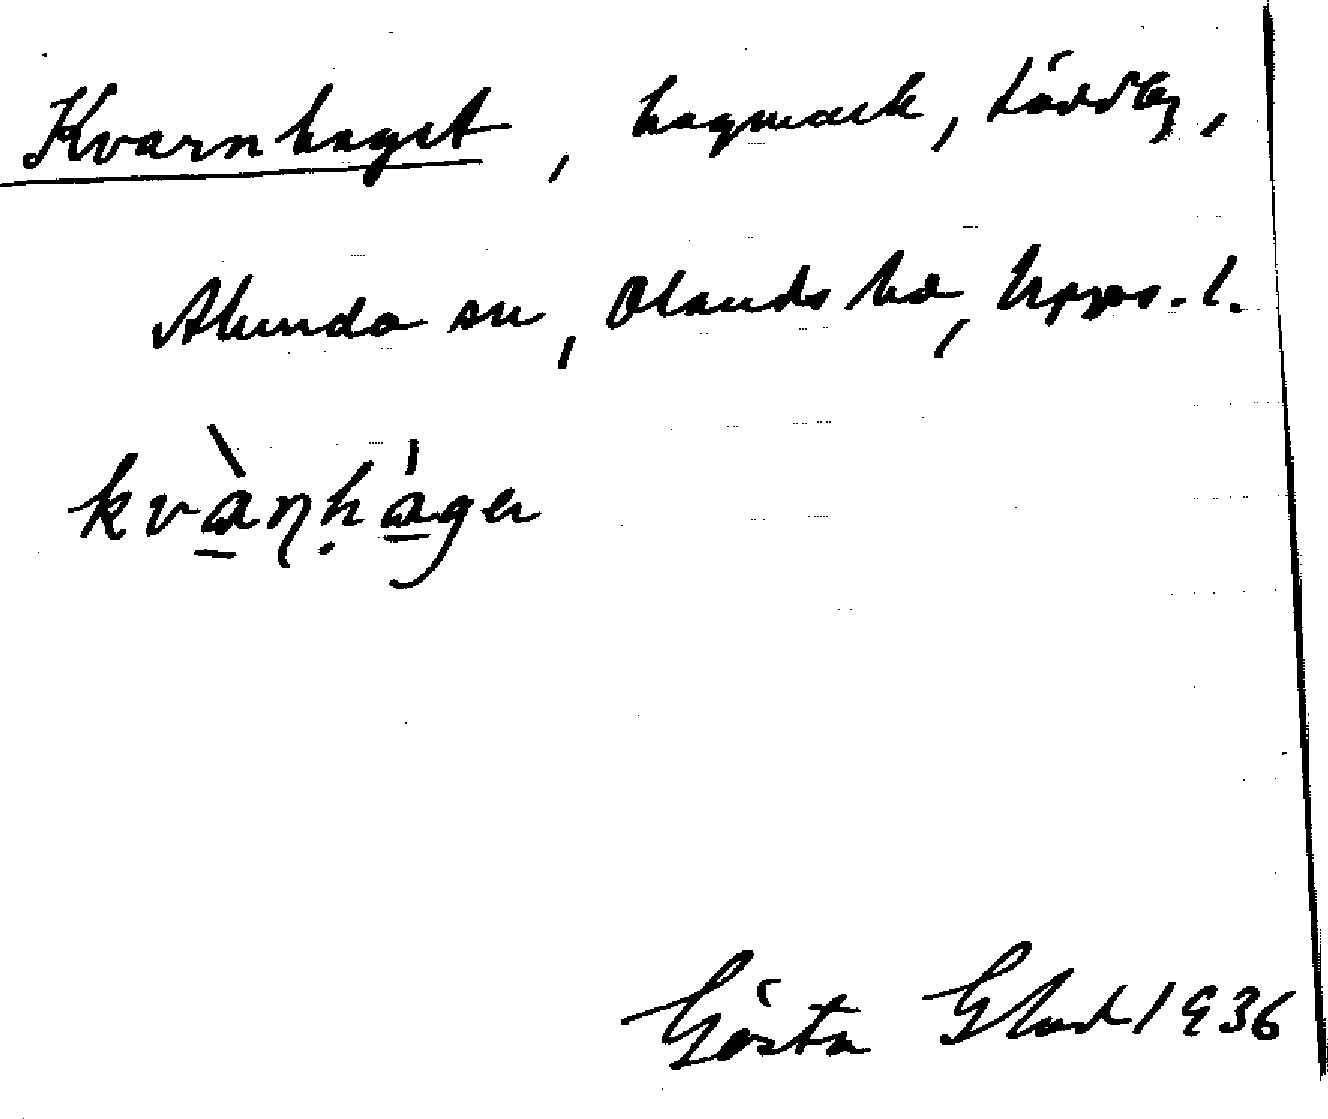 Kvarnhaget, hagmark, Löddby,
Alunda sn, Olands hd, Upps. l.
kvàṉḥáger
Gösta Glad 1936